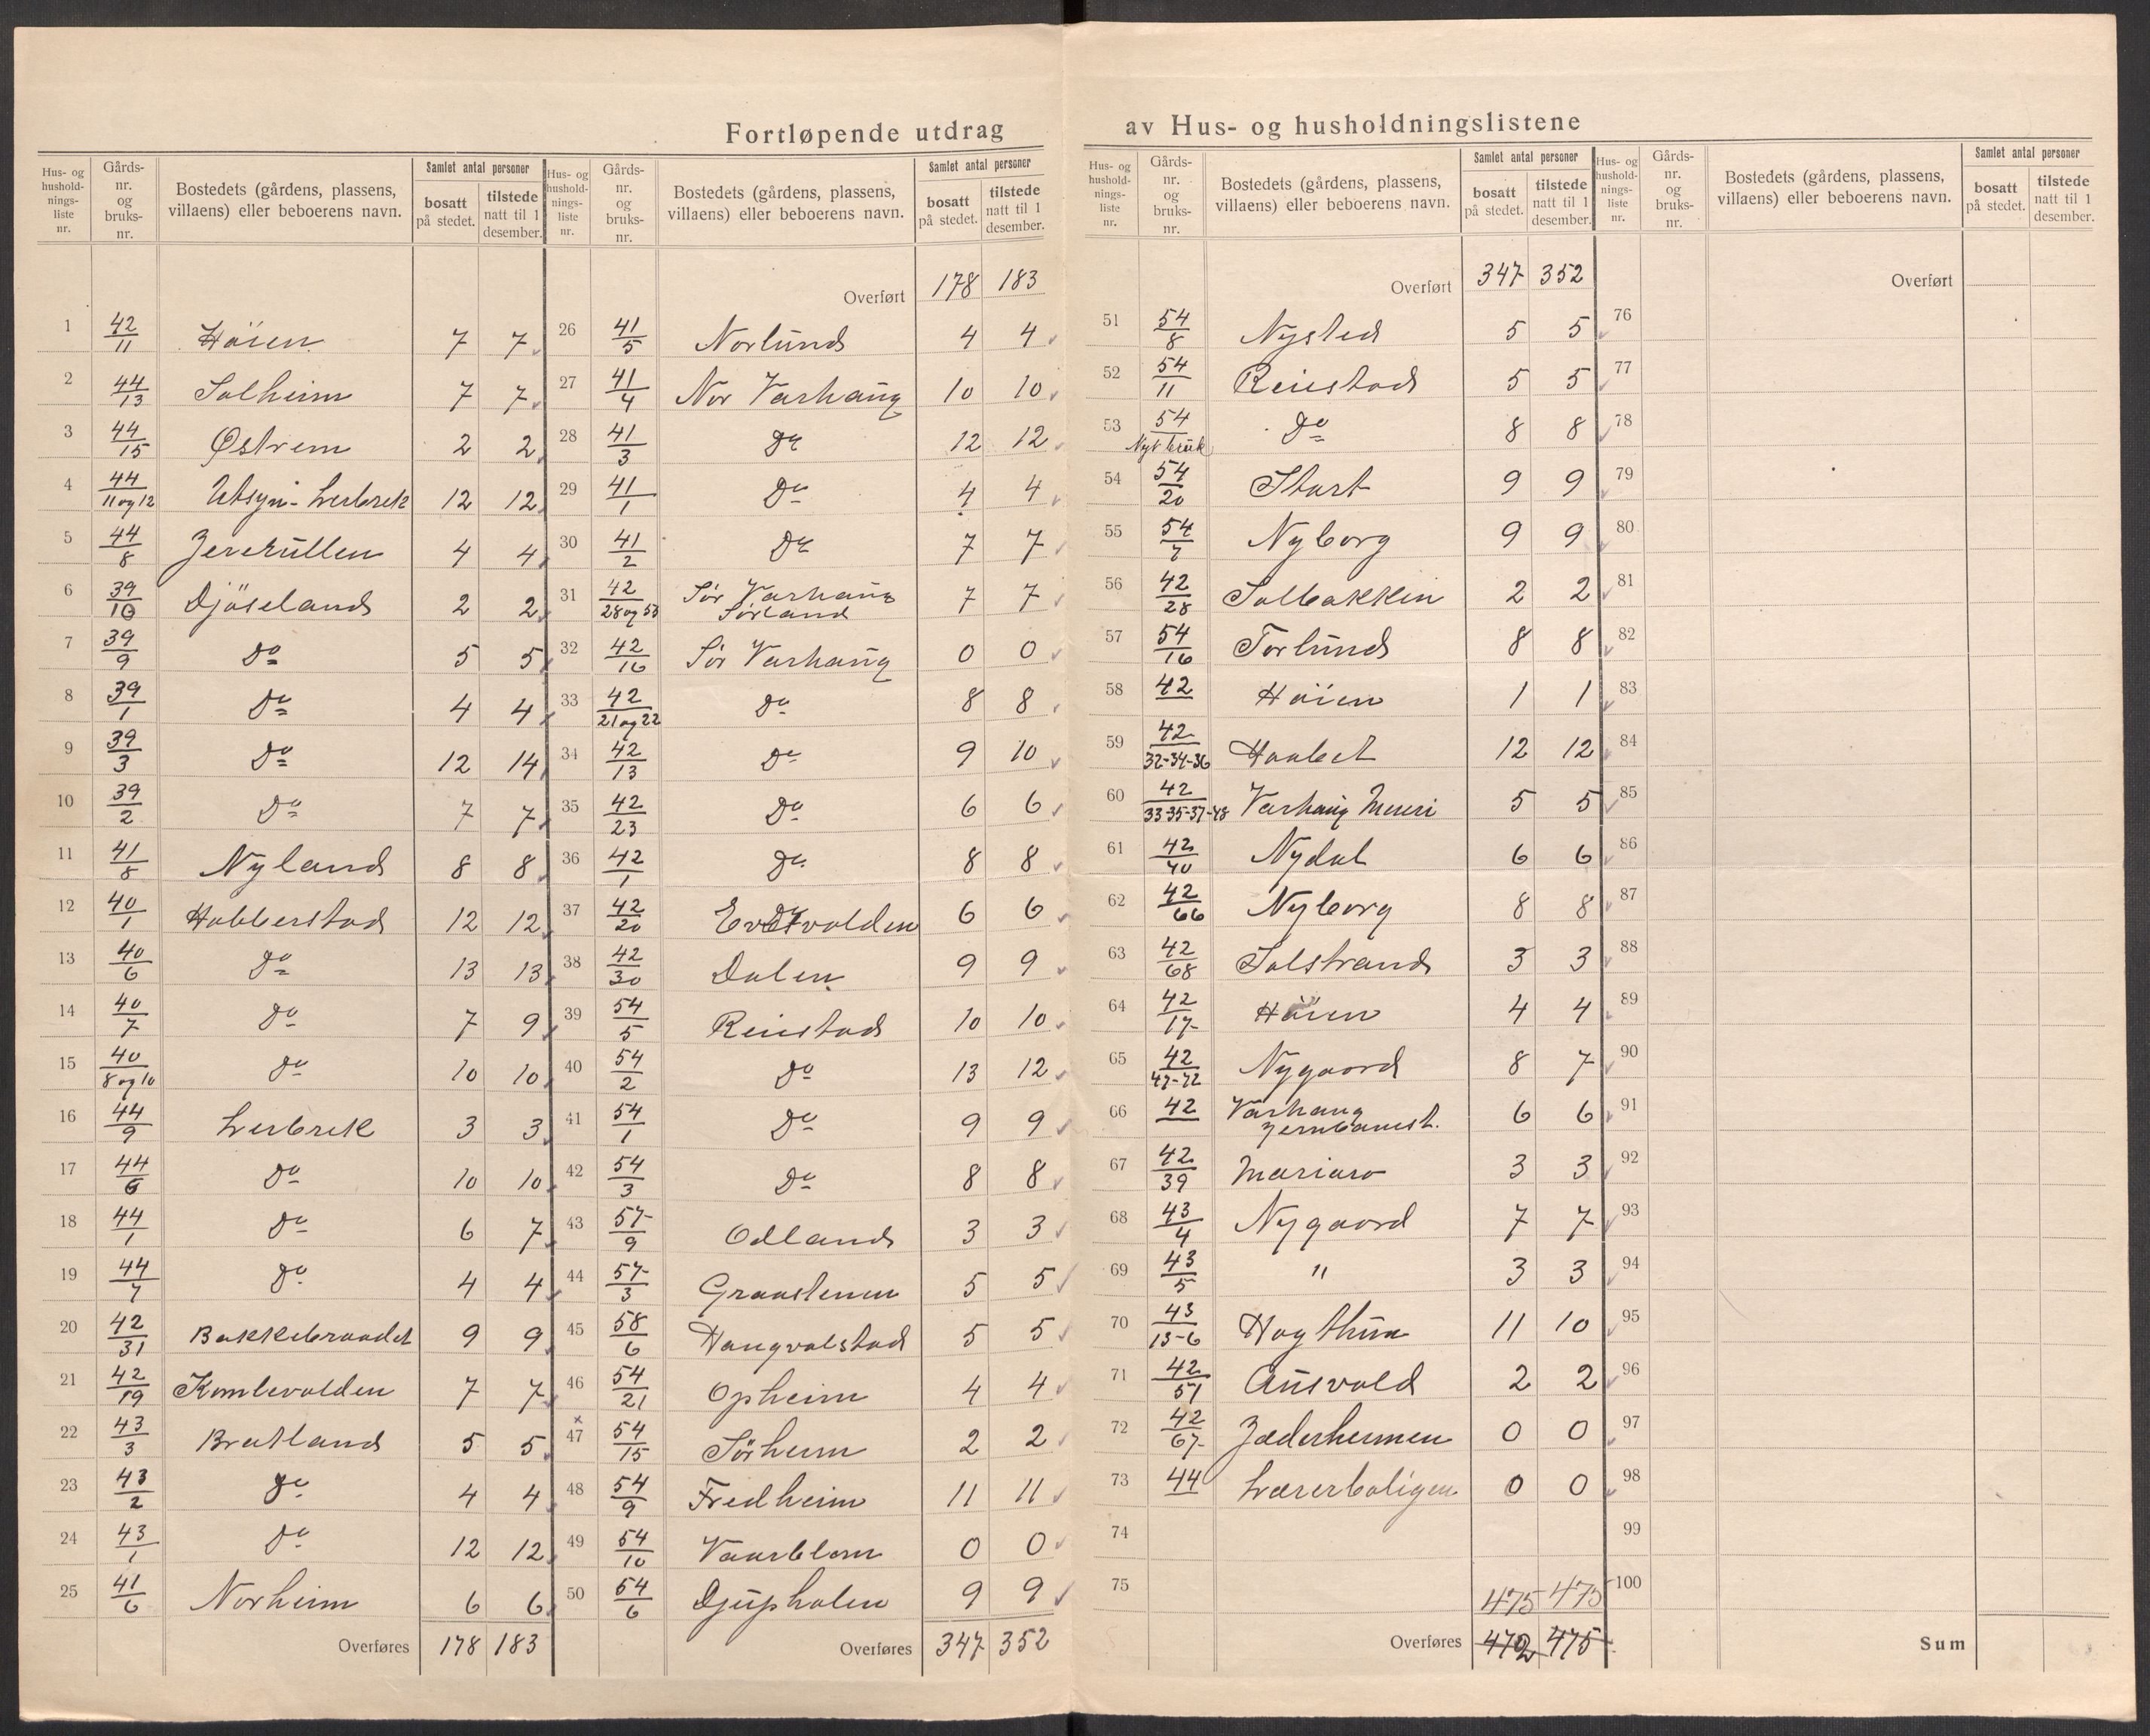 Fortløpende utdrag av Hus- og husholdningslistene
Hus- og husholdnings-liste nr. | Gårds-nr. og bruks-nr. | Bostedets (gårdens, plassens, villaens) eller beboerens navn. | Samlet antal personer | bosatt på stedet. | tilstede natt til 1 desember.
1 42/11 Höien 7 7
2 44/13 Solheim 7 7
3 44/15 Østrem 2 2
4 44/11 og 12 Utsyn - Lerbrek 12 12
5 44/8 4 4
6 39/10 Djöseland 2 2
7 39/9 Do 5 5
8 39/1 Do 4 4
9 39/3 Do 12 14
10 39/2 Do 7 7
11 41/8 Nyland 8 8
12 40/1 Hobberstad 12 12
13 40/6 Do 13 13
14 40/7 Do 7 9
15 40/8 og 10 Do 10 10
16 44/9 Lerbrek 3 3
17 44/6 Do 10 10
18 44/1 Do 6 7
19 44/7 Do 4 4
20 42/31 Bakkebraadet 9 9
21 42/19 Komlevolden 7 7
22 43/3 Bratland 5 5
23 43/2 Do 4 4
24 43/1 Do 12 12
25 41/6 Norheim 6 6
Overføres 178 183
Hus- og husholdnings-liste nr. | Gårds-nr. og bruks-nr. | Bostedets (gårdens, plassens, villaens) eller beboerens navn. | Samlet antal personer | bosatt på stedet. | tilstede natt til 1 desember.
Overført 178 183
26 41/5 Norlund 4 4
27 41/4 Nor Varhaug 10 10
28 41/3 Do 12 12
29 41/1 Do 4 4
30 41/2 Do 7 7
31 42/28 og 53 Sör Varhaug Sörland 7 7
32 42/16 Sör Varhaug 0 0
33 42/21 og 22 Do 8 8
34 42/13 Do 9 10
35 42/23 Do 6 6
36 42/1 Do 8 8
37 42/20 6 6
38 42/30 Dalen 9 9
39 54/5 Reiestad 10 10
40 54/2 Do 13 12
41 54/1 Do 9 9
42 54/3 Do 8 8
43 57/9 Odland 3 3
44 57/3 Graastenen 5 5
45 58/6 Haugvalstad 5 5
46 54/21 Opheim 4 4
x
47 54/15 Sörheim 2 2
48 54/9 Fredheim 11 11
49 54/10 Vaarblom 0 0
50 54/6 Djupholen 9 9
Overføres 347 352
Hus- og husholdnings-liste nr. | Gårds-nr. og bruks-nr. | Bostedets (gårdens, plassens, villaens) eller beboerens navn. | Samlet antal personer | bosatt på stedet. | tilstede natt til 1 desember.
Overført 347 352
51 54/8 Nysted 5 5
52 54/11 Reiestad 5 5
53 54/Nyt bruk Do 8 8
54 54/20 Start 9 9
55 54/7 Nyborg 9 9
56 42/28 Solbakken 2 2
57 54/16 Torlund 8 8
58 42 Höien 1 1
59 42/32-34-36 Haabet 12 12
60 42/33-35-37-48 Varhaug Meieri 5 5
61 42/40 Nydal 6 6
62 42/66 Nyborg 8 8
63 42/68 Solstrand 3 3
64 42/17 Höien 4 4
65 42/47-72 Nygaard 8 7
66 42 Varhaug Jernbanest. 6 6
67 42/39 Mariaro 3 3
68 43/4 Nygaard 7 7
69 43/5 " 3 3
70 43/13-6 Hogthun 11 10
71 42/51 Ausvold 2 2
72 42/67 Jæderheimen 0 0
73 44 Lærerboligen 0 0
74
75 475 475
Overføres 472 475
Hus- og husholdnings-liste nr. | Gårds-nr. og bruks-nr. | Bostedets (gårdens, plassens, villaens) eller beboerens navn. | Samlet antal personer | bosatt på stedet. | tilstede natt til 1 desember.
Overført
76
77
78
79
80
81
82
83
84
85
86
87
88
89
90
91
92
93
94
95
96
97
98
99
100
Sum